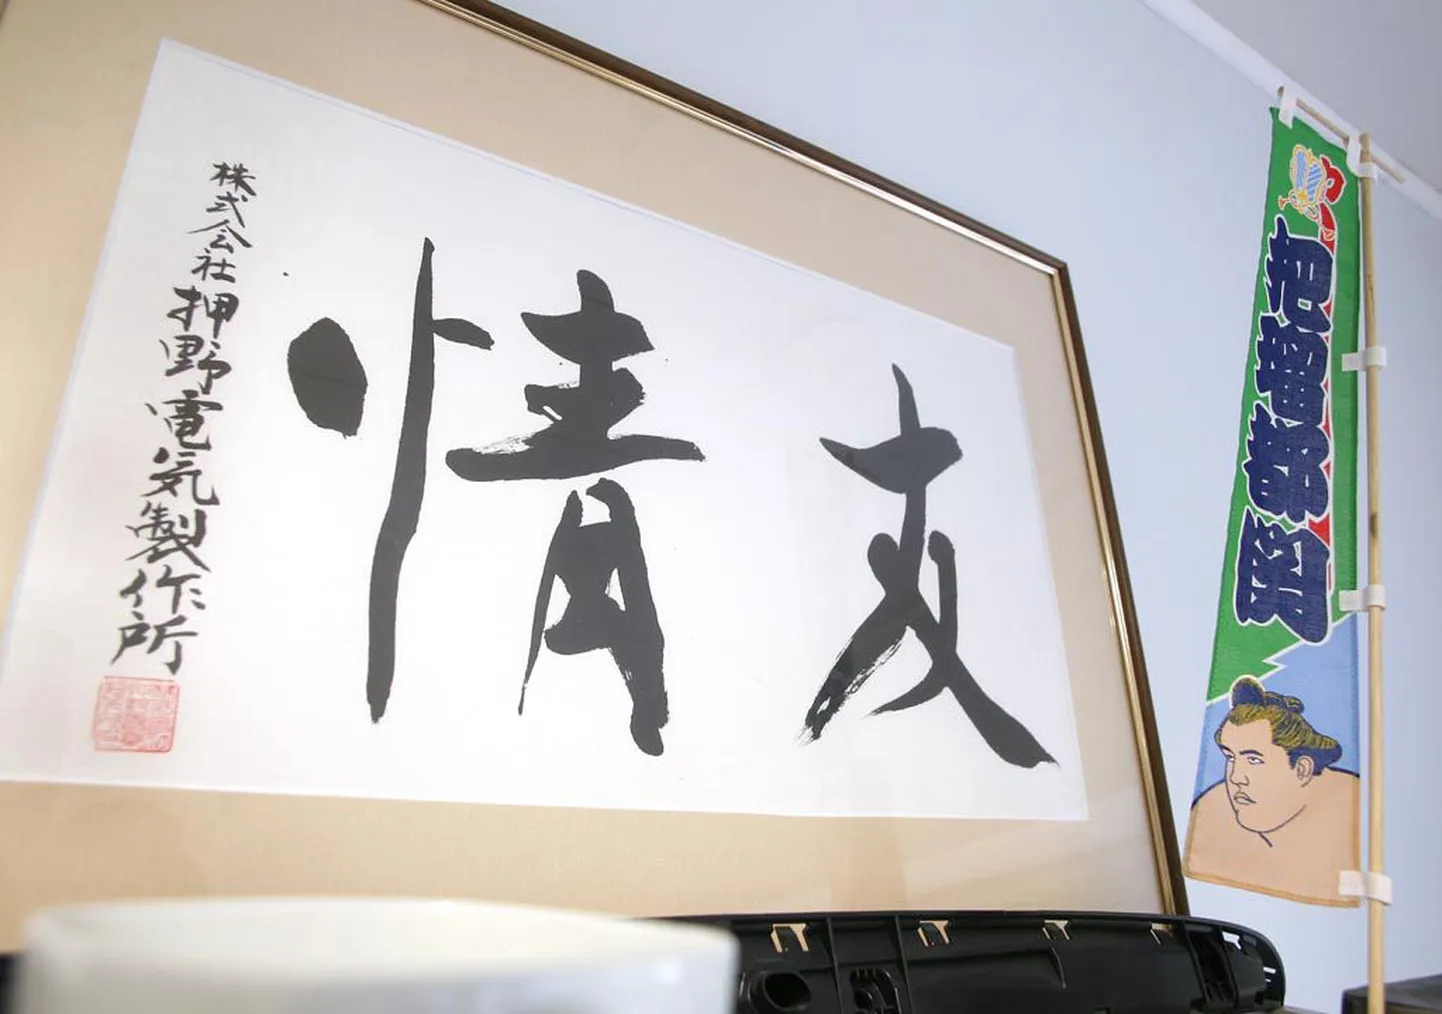 友情
株式会社押野電気製作所
把瑠都関